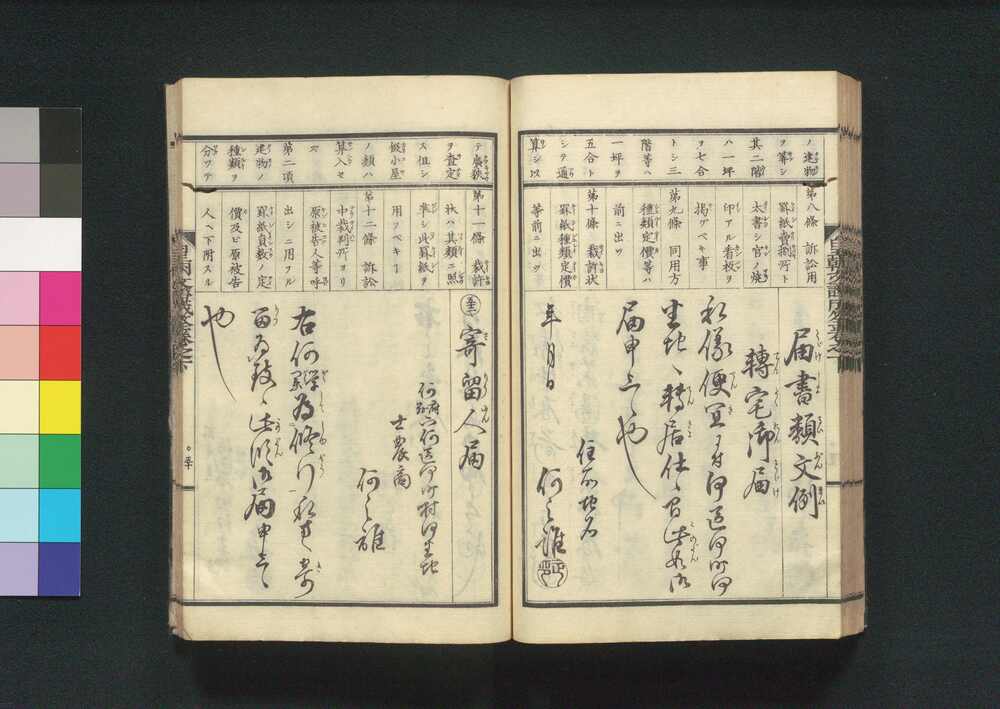 ノ建物
ヲ算シ
其二階
ハ一坪
ヲ七合
トシ三
階等ハ
一坪ヲ
五合ト
シテ通
算シ以
第八條 訴訟用
罫紙賣捌所ト
太書シ官ノ焼
印アル看板ヲ
掲グベキ事
第九條 同用方
種類定價等ハ
前ニ出ヅ
第十條 裁許状
罫紙種類定價
等前ニ出ヅ
届書類文例
轉宅御届
私儀便宜ニ付何區何町何
番地ヘ轉居仕候間此段御
届申上候也
年月日
住所地名
何之誰
テ廣狹
ヲ査定
ス但シ
假小屋
ノ類ハ
算入セ
ズ
第二項
建物ノ
種類ヲ
分ツテ
第十一條 裁許
状ハ其類ニ照
準シ此罫紙ヲ
用フベキ
第十二條 訴訟
中裁判所ヨリ
原被告人等呼
出シニ用フル
罫紙員数ノ定
價及ビ原被告
人ヘ下附スル
寄留人届
何府縣下何區何町村何番地
士農商
何之誰
右何 為修行私方ヘ寄
留為致候此段御届申上候
也